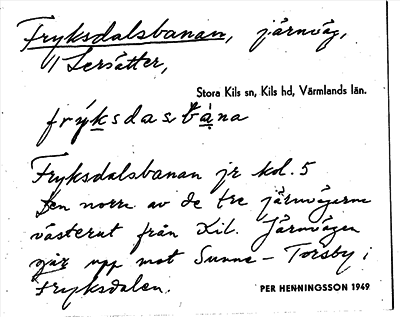 Fryksdalsbanan, järnväg,
1/ Lersätter,
Stora Kils sn, Kils hd, Värmlands län.
frýksdasbá̩na
Fryksdalsbanan jr kol. 5
Den norra av de tre järnvägarna
västerut från Kil. Järnvägen
går upp mot Sunne - Torsby i
Fryksdalen.
PER HENNINGSSON 1949